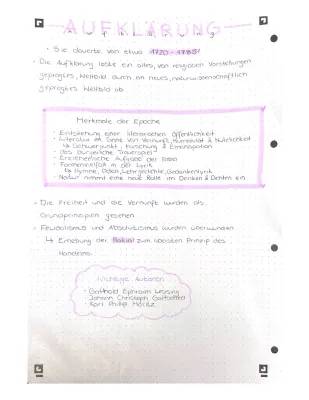 AUFKLÄRUNG
• Sie dauerte von etwa 1720-1785!
• Die Aufklärung löste ein altes, von religiösen Vorstellungen
geprägtes, Weltbild durch ein neues, naturwissenschaftlich
geprägtes Weltbild ab.
Merkmale der Epoche
- Entstehung einer literarischen Öffentlichkeit
- Literatur im Sinne von Vernunft, Humanität & Nützlichkeit
↳ Schwerpunkt: Erziehung & Emanzipation
- das bürgerliche Trauerspiel
- Erzieherische Aufgabe der
- Formenvielfalt in der Lyrik
↳ Hymne, Oden, Lehrgedichte, Gedankenlyrik
- Natur nimmt eine neue Rolle im Denken & Dichten ein
• Die Freiheit und die Vernunft wurden als
Grundprinzipien gesehen
• Feudalismus und Absolutismus wurden überwunden
↳ Erhebung der Ratio zum obersten Prinzip des
Handelns.
Wichtige Autoren
- Gotthold Ephraim Lessing
- Johann Christoph Gottsched
- Karl Philip Moritz